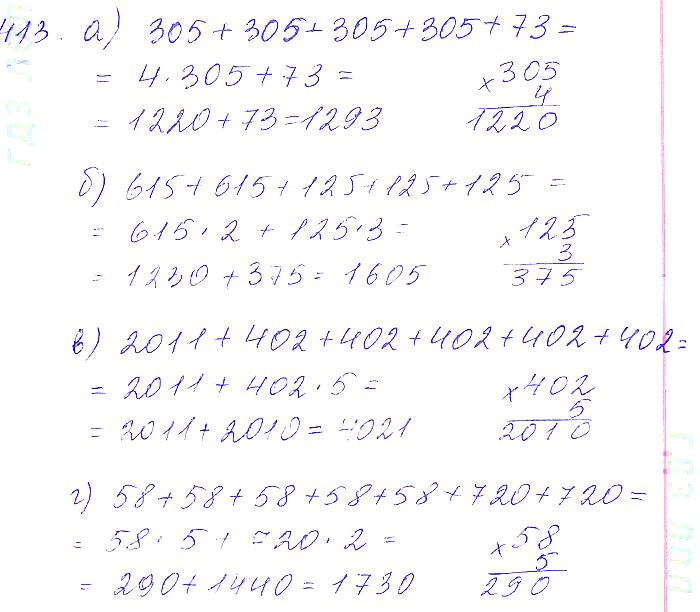 413. а) 305 + 305 + 305 + 305 + 73 =
= 4 · 305 + 73 =
× 305
4
= 1220 + 73 = 1293
1220
б) 615 + 615 + 125 + 125 + 125 =
= 615 · 2 + 125 · 3 =
× 125
3
= 1230 + 375 = 1605
375
в) 2011 + 402 + 402 + 402 + 402 + 402 =
= 2011 + 402 · 5 =
× 402
5
= 2011 + 2010 = 4021
2010
г) 58 + 58 + 58 + 58 + 58 + 720 + 720 =
= 58 · 5 + 720 · 2 =
× 58
5
= 290 + 1440 = 1730
290